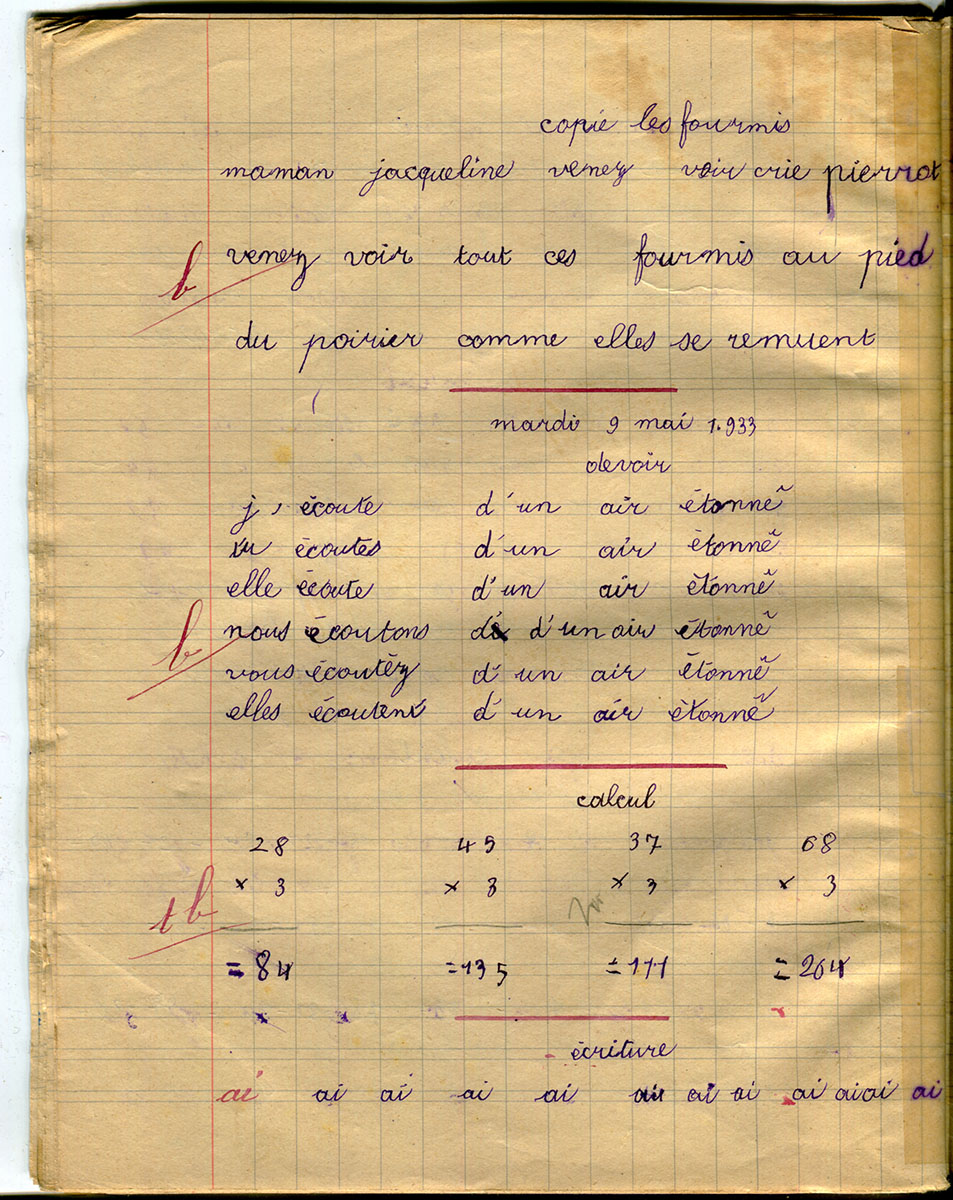 copie les fourmis
maman jacqueline venez voir crie pierrot
b venez voir tout ces fourmis au pied
du poirier comme elles se remuent
mardi 9 mai 1.933
devoir
j, écoute d'un air étonné
tu écoutes d'un air étonné
elle écoute d'un air étonné
b nous écoutons d'un air étonné
vous écoutéz d'un air étonné
elles écoutent d'un air étonné
calcul
28 45 37 68
x 3 x 3 x 3 x 3
tb
=84 =135 =111 =204
écriture
ai ai ai ai ai ai ai ai ai ai ai ai